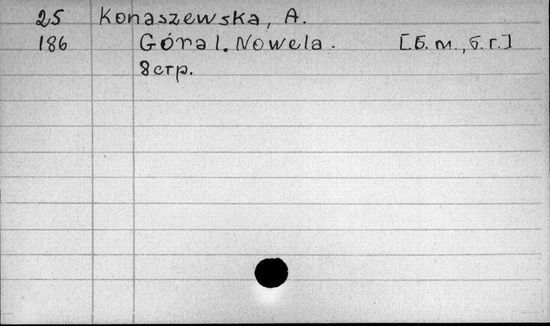 25 Konaszewska, A.
186 Góral. Nowela. [б.м., б.г.]
8стр.